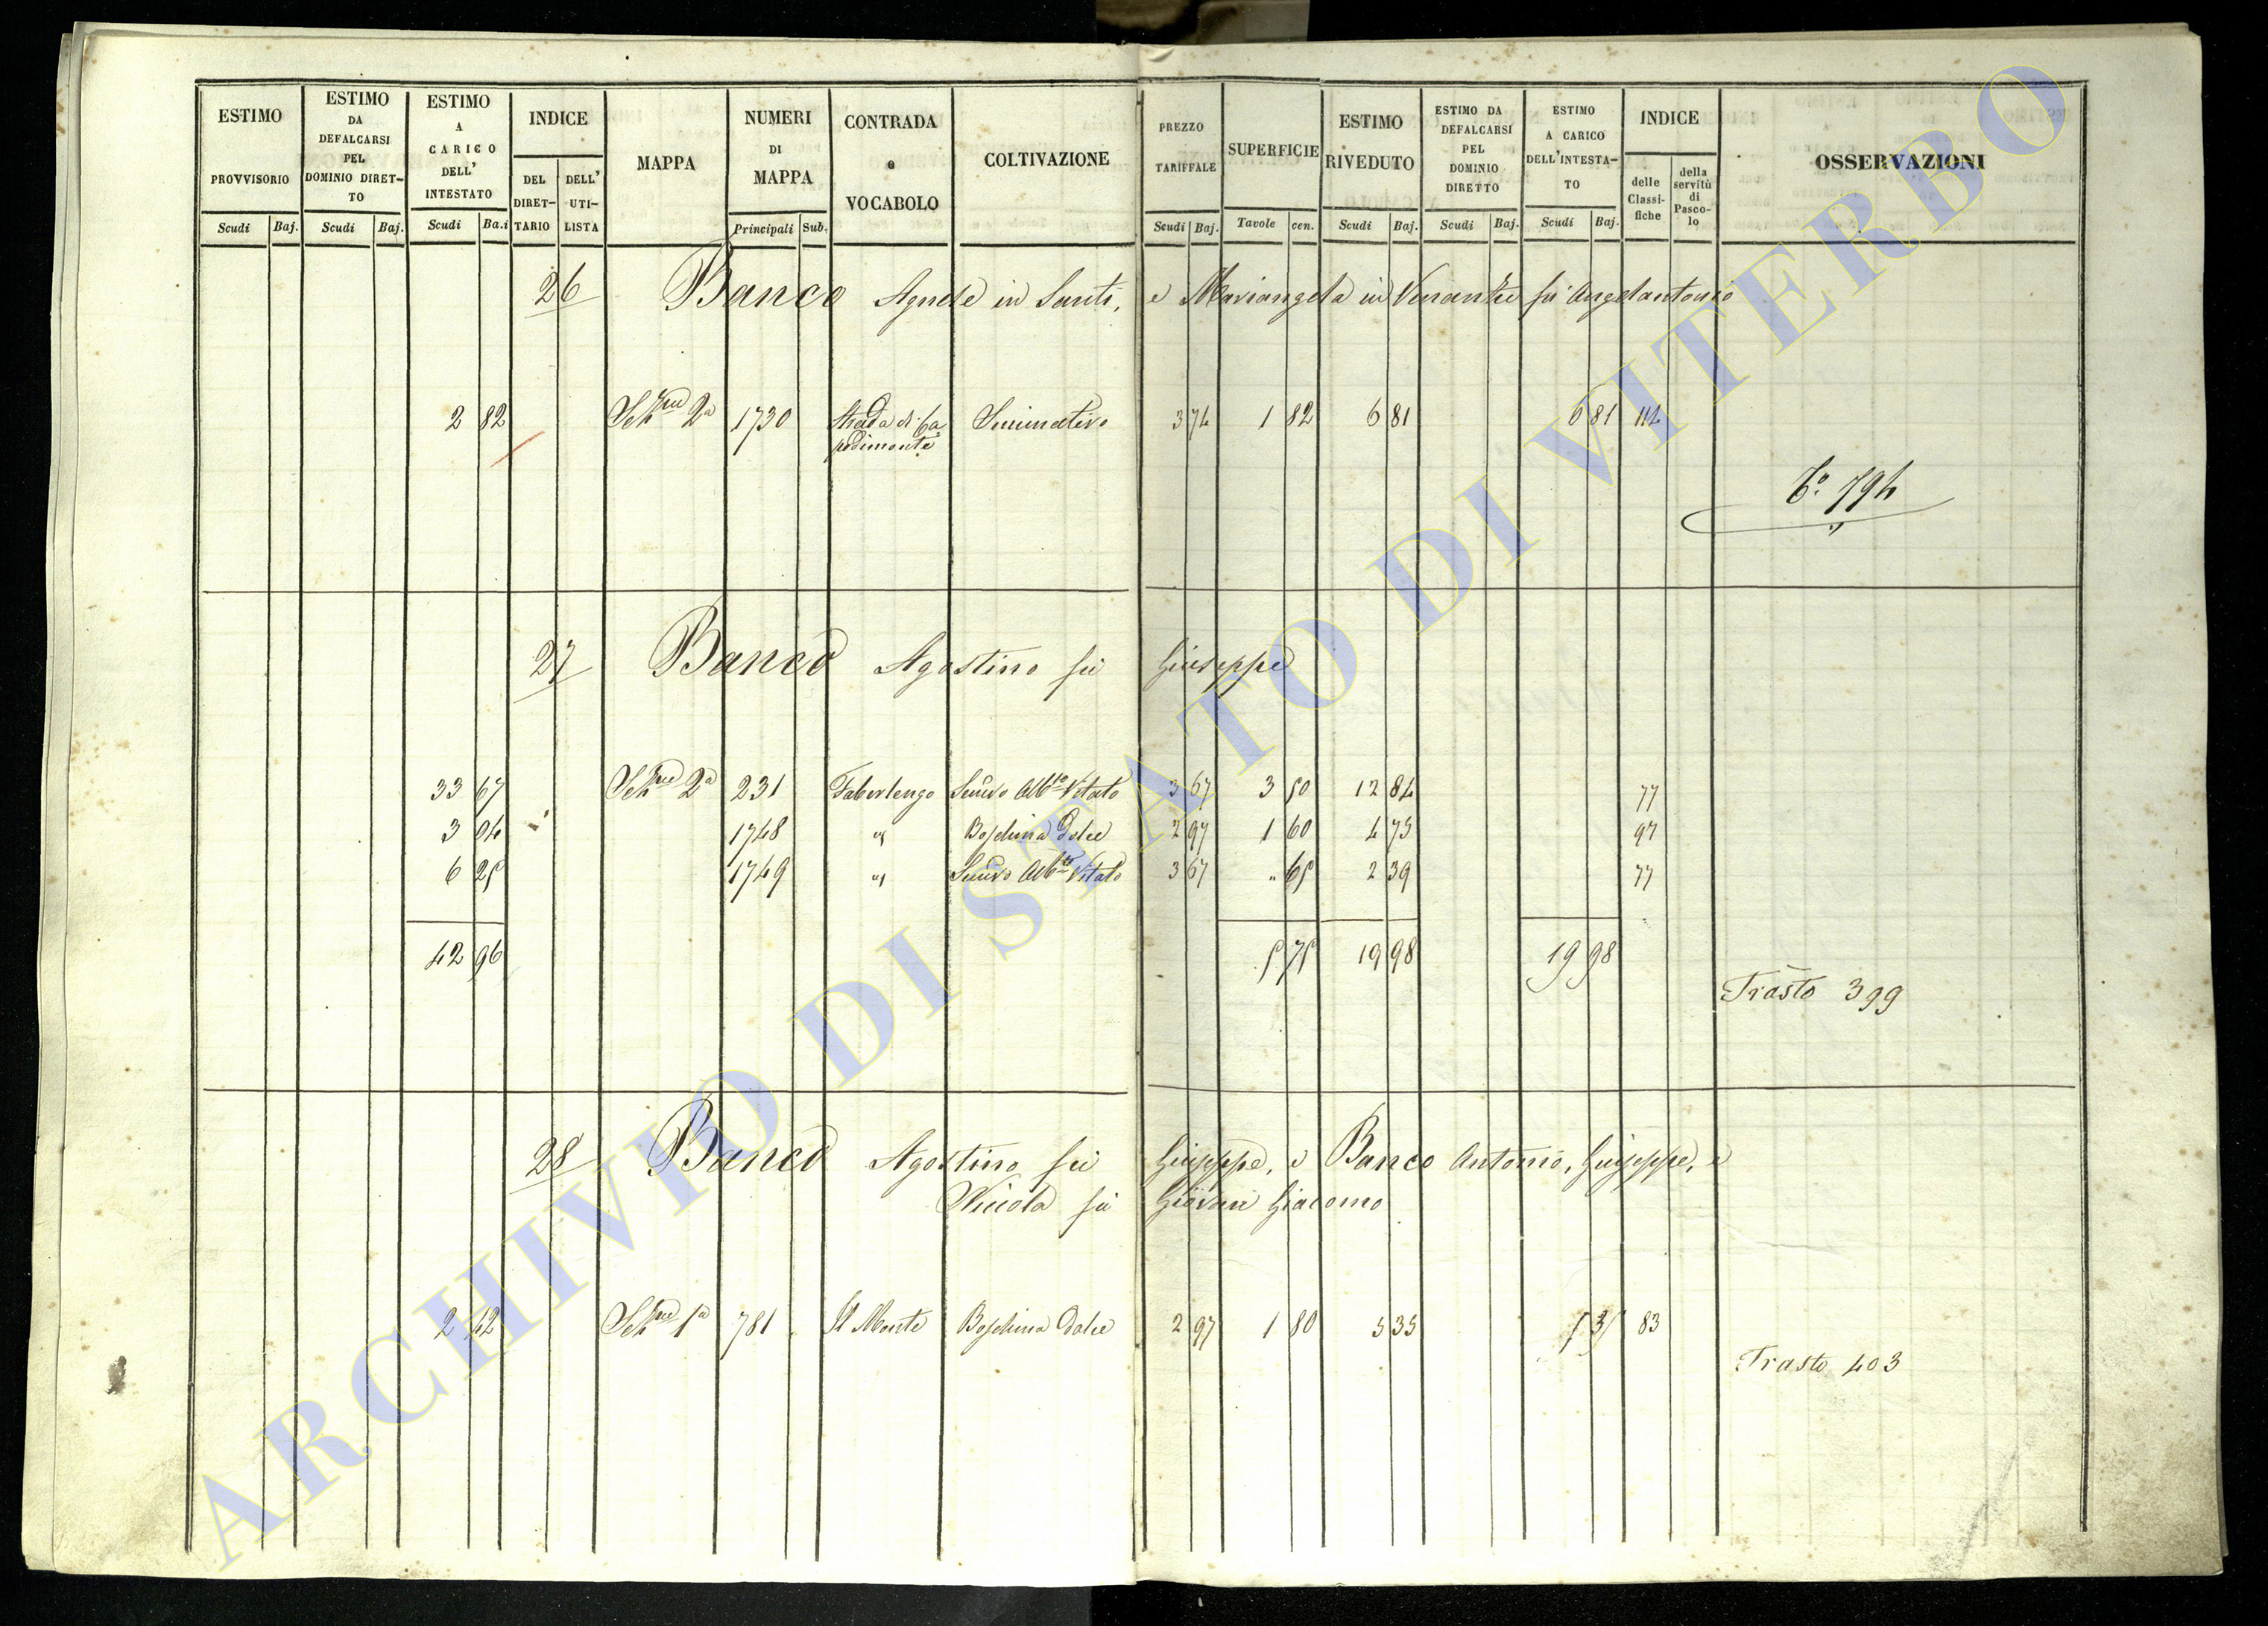 ESTIMO PROVVISORIO | ESTIMO DA DEFALCARSI PEL DOMINIO DIRET-TO | ESTIMO A CARICO DELL' INTESTATO | INDICE | MAPPA | NUMERI DI MAPPA | CONTRADA e VOCABOLO | COLTIVAZIONE | PREZZO TARIFFALE | SUPERFICIE | ESTIMO RIVEDUTO | ESTIMO DA DEFALCARSI PEL DOMINIO DIRETTO | ESTIMO A CARICO DELL'INTESTA-TO | INDICE | OSSERVAZIONI
DEL DIRET-TARIO | DELL' UTI-LISTA | delle Classi-fiche | della servitù di Pasco-lo
Scudi | Baj. | Scudi | Baj. | Scudi | Ba.i | Principali | Sub. | Scudi | Baj. | Tavole | cen. | Scudi | Baj. | Scudi | Baj. | Scudi | Baj.
26 Banco Agnese in Santi, e Mariangela in Venante fù Angelantonio
2 82 | 2a | 1730 | Strada di Ca | Seminativo | 3 74 | 1 82 | 6 81 | 6 81 | 112
podimonte
794
27 Banco Agostino fù Giuseppe
33 67 | 2a | 231 | Faberlengo | Semvo Albto Vitato | 3 67 | 3 50 | 12 84 | 77
3 04 | 1748 | " | Boschina Dolce | 2 97 | 1 60 | 4 75 | 97
6 25 | 1749 | " | Semvo Albto Vitato | 3 67 | " 65 | 2 39 | 77
42 96 | 5 75 | 19 98 | 19 98
Trasto 399
28 Banco Agostino fù Giuseppe, e Banco Antonio, Giuseppe, e
Niccola fù Giovan Giacomo
2 42 | 1a | 781 | Il Monte | Boschina Dolce | 2 97 | 1 80 | 5 35 | 5 35 | 83
Trasto 403
ARCHIVIO DI STATO DI VITERBO